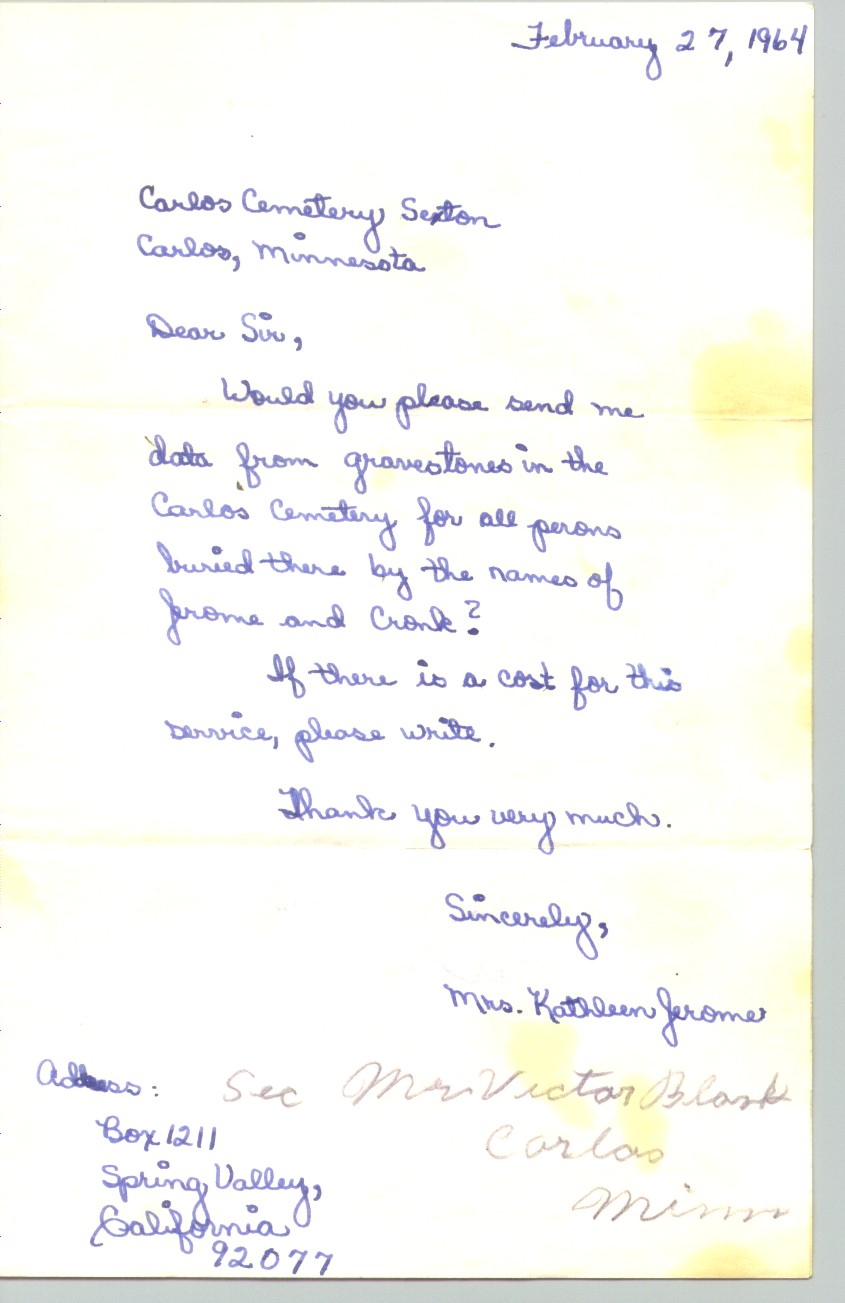 February 27, 1964
Carlos Cemetery Sexton
Carlos, Minnesota
Dear Sir,
Would you please send me
data from gravestones in the
Carlos Cemetery for all perons
buried there by the names of
Jerome and Cronk?
If there is a cost for this
service, please write.
Thank you very much.
Sincerely,
Mrs. Kathleen Jerome
Address:
Box 1211
Spring Valley,
California
92077
Sec Mr Victor Blank
Carlos
Minn